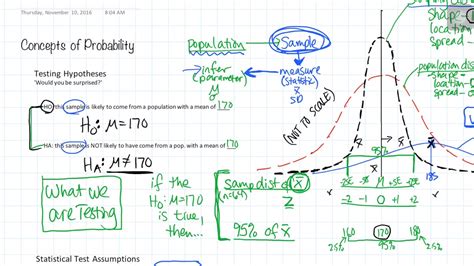 Thursday, November 10, 2016 8:04 AM
Concepts of Probability
Testing Hypotheses
"Would you be surprised?"
HO: this sample is likely to come from a population with a mean of 170
H₀: μ=170
HA: this sample is NOT likely to have come from a pop. with a mean of 170
Hₐ: μ≠170
What we
are Testing
if the
H₀: μ=170
is true,
then...
Population
Sample
infer
(parameter)
μ
measure
(statistic)
x̄
SD
(NOT TO SCALE)
shape -
location
spread -
population dist
shape -
location -
spread -
samp dist of x̄
(n=64)
Z
95% of x̄
95%
x̄
185
-2SE -SE μ +SE +2SE
-2 -1 0 +1 +2
160 170 180
2.5% 95% 2.5%
Statistical Test Assumptions